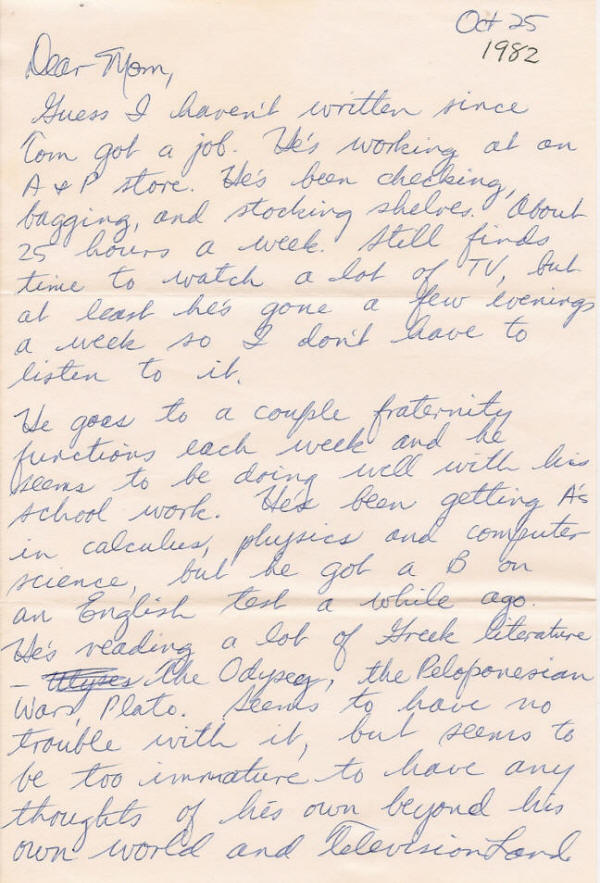 Oct 25
1982
Dear Mom,
Guess I haven't written since
Tom got a job. He's working at an
A & P store. He's been checking,
bagging, and stocking shelves. About
25 hours a week. Still finds
time to watch a lot of TV, but
at least he's gone a few evenings
a week so I don't have to
listen to it.
He goes to a couple fraternity
functions each week and he
seems to be doing well with his
school work. He's been getting A's
in calculus, physics and computer
science, but he got a B on
an English test a while ago.
He's reading a lot of Greek literature
- Ulysses The Odyssey, the Peloponesian
Wars, Plato. Seems to have no
trouble with it, but seems to
be too immature to have any
thoughts of his own beyond his
own world and Television Land